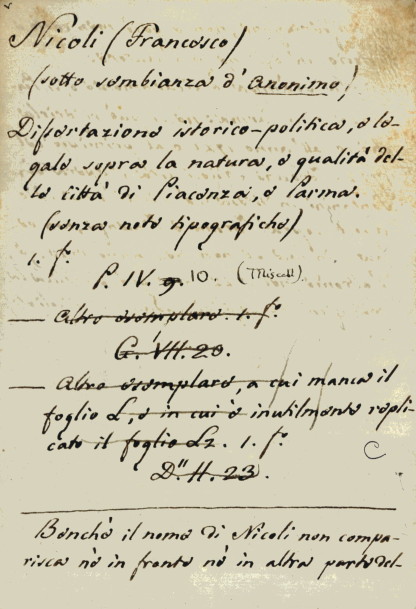 Nicoli (Francesco)
(sotto sembianza d'Anonimo)
Dissertazione istorico-politica, e le-
gale sopra la natura, e qualità del-
le città di Piacenza, e Parma.
(senza note tipografiche)
1. f.º
P. IV. 9. 10. (Miscell.)
— Altro esemplare. 1. f.º
G. VII. 20.
— Altro esemplare, a cui manca il
foglio L, e in cui è inutilmente repli-
cato il foglio L2. 1. f.º
C
D" H. 23.
Benchè il nome di Nicoli non compa-
risca nè in fronte nè in altra parte del-